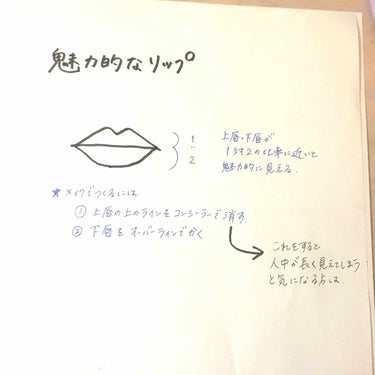 魅力的なリップ
1
:
2
上唇:下唇が
1対2の比率に近いと
魅力的に見える.
★ メイクでつくるには
① 上唇の上のラインをコンシーラーで消す.
② 下唇をオーバーラインでかく
これをすると
人中が長く見えてしまう
と気になる方は